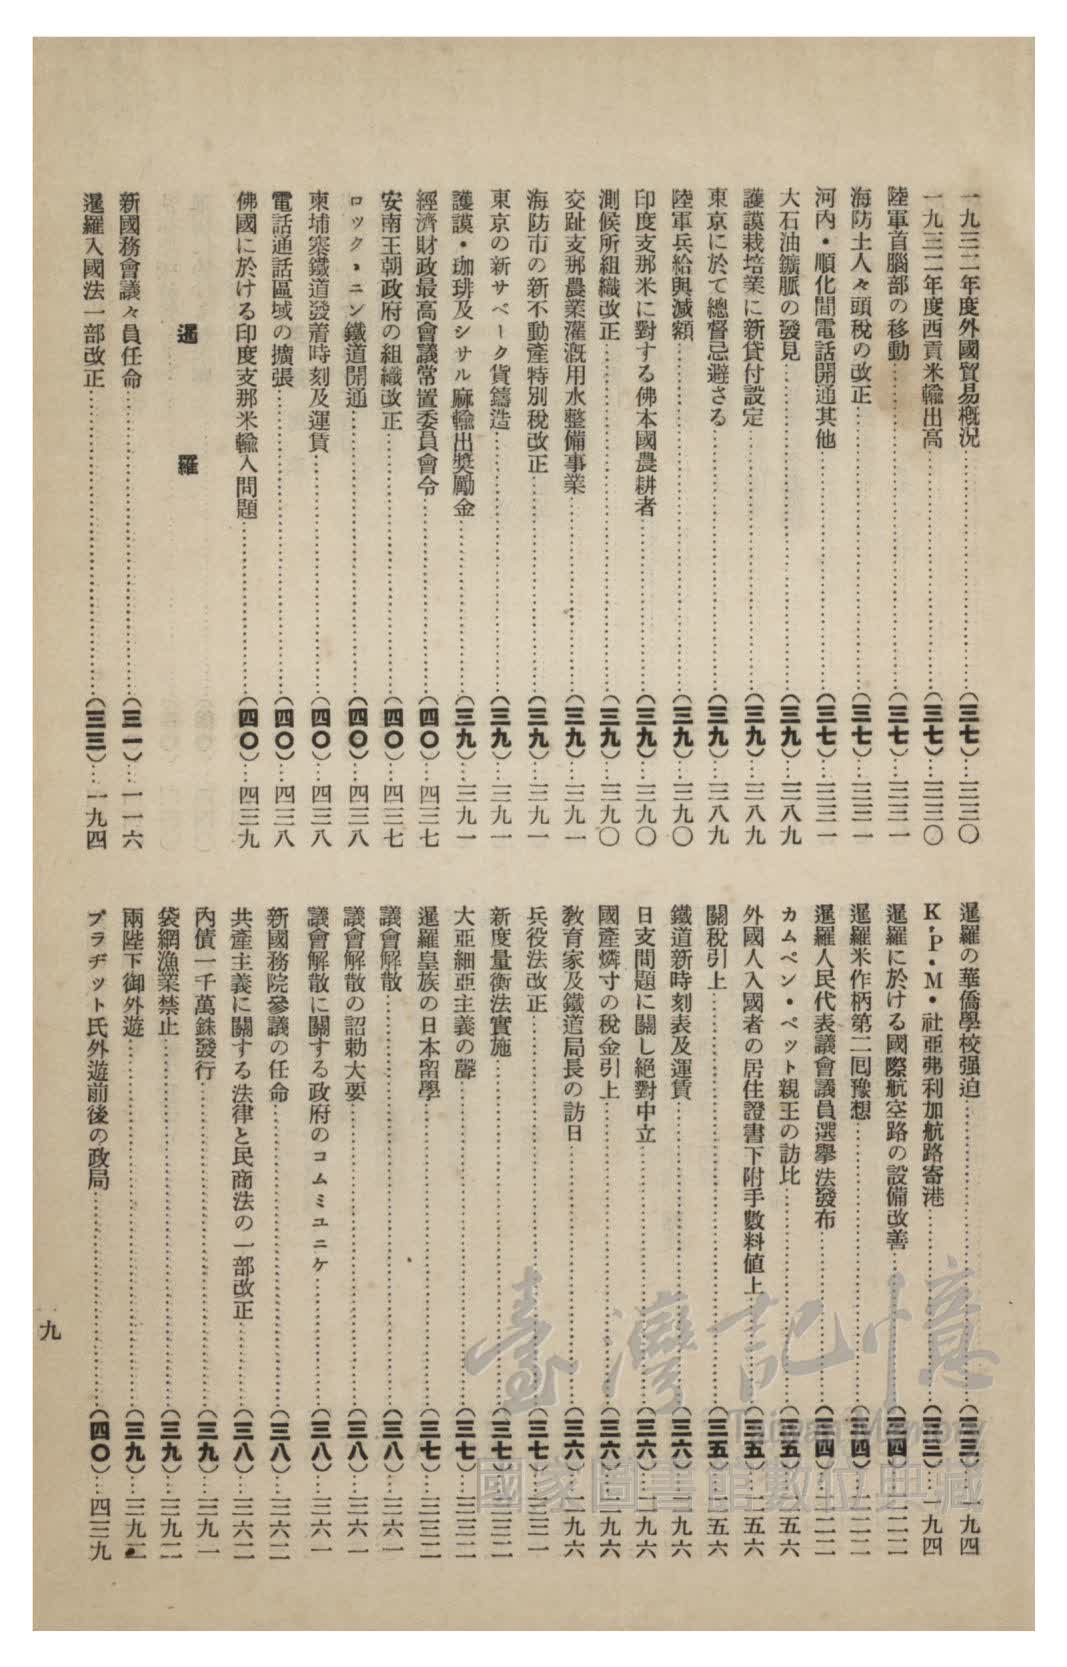 一九三二年度外國貿易槪況…(三七)…三三〇
一九三二年度西貢米輸出高…(三七)…三三〇
陸軍首腦部の移動…(三七)…三三一
海防土人々頭稅の改正…(三七)…三三一
河內・順化間電話開通其他…(三七)…三三一
大石油鑛脈の發見…(三九)…三八九
護謨栽培業に新貸付設定…(三九)…三八九
東京に於て總督忌避さる…(三九)…三八九
陸軍兵給與減額…(三九)…三九〇
印度支那米に對する佛本國農耕者…(三九)…三九〇
測候所組織改正…(三九)…三九〇
交趾支那農業灌漑用水整備事業…(三九)…三九一
海防市の新不動產特別稅改正…(三九)…三九一
東京の新サペーク貨鑄造…(三九)…三九一
護謨・珈琲及シサル麻輸出奬勵金…(三九)…三九一
經濟財政最高會議常置委員會令…(四〇)…四三七
安南王朝政府の組織改正…(四〇)…四三七
ロック・ニン鐵道開通…(四〇)…四三八
柬埔寨鐵道發着時刻及運賃…(四〇)…四三八
電話通話區域の擴張…(四〇)…四三八
佛國に於ける印度支那米輸入問題…(四〇)…四三九
暹羅
新國務會議々員任命…(三一)…一一六
暹羅入國法一部改正…(三三)…一九四
暹羅の華僑學校强迫…(三三)…一九四
K・P・M・社亞弗利加航路寄港…(三三)…一九四
暹羅に於ける國際航空路の設備改善…(三四)…二二二
暹羅米作柄第二囘豫想…(三四)…二二二
暹羅人民代表議會議員選擧法發布…(三四)…二二二
カムペン・ペット親王の訪比…(三五)…二五六
外國人入國者の居住證書下附手數料値上…(三五)…二五六
關稅引上…(三五)…二五六
鐵道新時刻表及運賃…(三六)…二九六
日支問題に關し絕對中立…(三六)…二九六
國產燐寸の稅金引上…(三六)…二九六
敎育家及鐵道局長の訪日…(三六)…二九六
兵役法改正…(三七)…三三一
新度量衡法實施…(三七)…三三二
大亞細亞主義の聲…(三七)…三三二
暹羅皇族の日本留學…(三七)…三三二
議會解散…(三八)…三六一
議會解散の詔勅大要…(三八)…三六一
議會解散に關する政府のコムミユニケ…(三八)…三六一
新國務院參議の任命…(三八)…三六二
共產主義に關する法律と民商法の一部改正…(三八)…三六二
內債一千萬銖發行…(三九)…三九一
袋網漁業禁止…(三九)…三九二
兩陛下御外遊…(三九)…三九二
プラヂット氏外遊前後の政局…(四〇)…四三九
九
臺灣記憶
Taiwan Memory
國家圖書館數位典藏